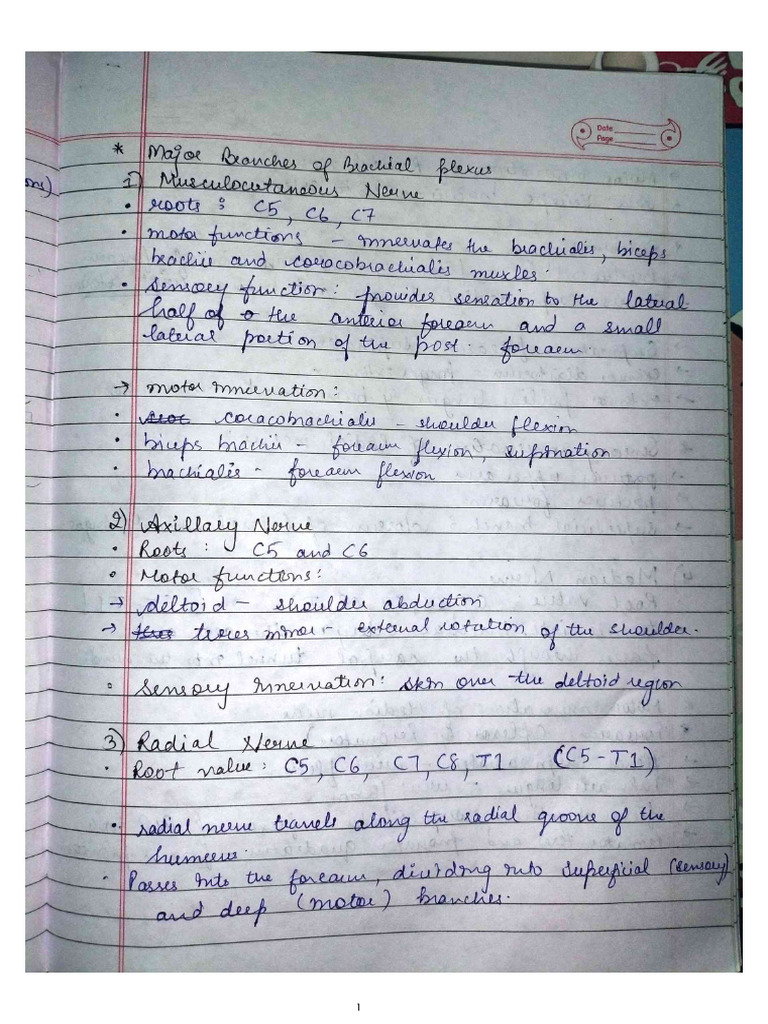 Date
Page
* Major Branches of Brachial plexus
1) Musculocutaneous Nerve
• roots : C5, C6, C7
• motor functions – innervates the brachiales, biceps
brachii and coracobrachialis muscles.
• sensory function: provides sensation to the lateral
half of the anterior forearm and a small
lateral portion of the post. forearm.
→ motor innervation:
• coracobrachialis – shoulder flexion
• biceps brachii – forearm flexion, supination
• brachialis – forearm flexion
2) Axillary Nerve
• Roots : C5 and C6
• Motor functions:
→ deltoid – shoulder abduction
→ teres minor – external rotation of the shoulder.
• Sensory innervation: skin over the deltoid region
3) Radial Nerve
• Root value: C5, C6, C7, C8, T1 (C5-T1)
• radial nerve travels along the radial groove of the
humerus.
• Passes into the forearm, dividing into superficial (sensory)
and deep (motor) branches.
1